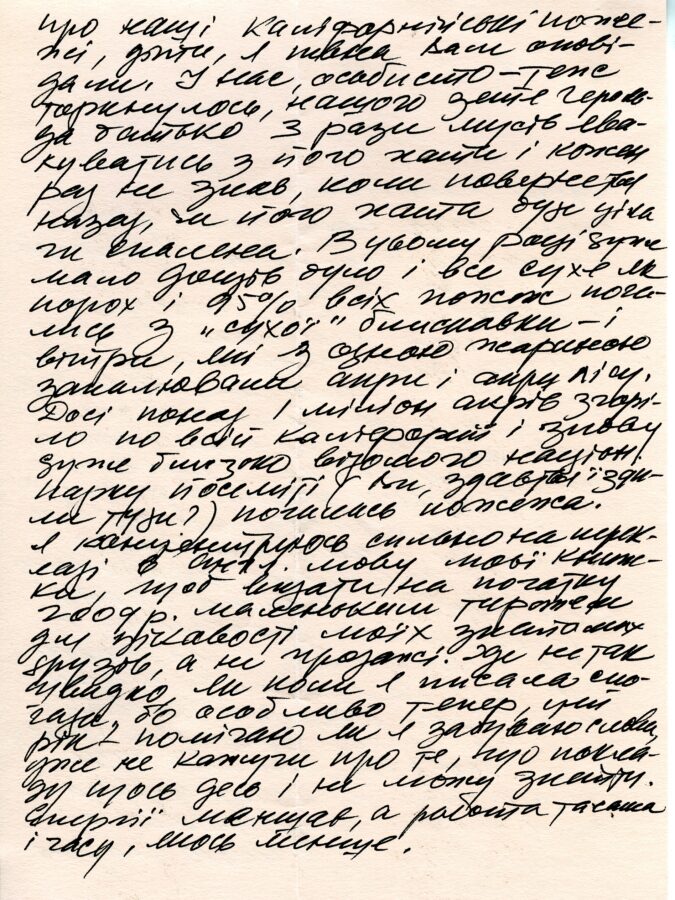 про нащі Каліфорнійські поже-
жі, діти, я певна Вам опові-
дали. У нас, особисто – теж
торкнулось, нашого зятя Герель-
да батько 3 рази мусів ева-
куватись з його хати і кожен
раз не знав, коли повернеться
назад, чи його хата буде ціла
чи спалена. В цьому році дуже
мало дощів було і все сухе як
порох і 95% всіх пожеж поча-
лись з „сухої" блискавки – і
вітри, які з одною жариною
запалювали акри і акри лісу.
Досі понад 1 міліон акрів згорі-
ло по всій Каліфорнії і знову
дуже близько відомого націон.
парку Йосеміті (Ви, здається їзди-
ли туди?) почались пожежа.
Я концентруюсь сильно на перек-
ладі в англ. мову моєї книж-
ки, щоб видати на початку
2009 р. маленьким тиражем
для цікавості моїх знайомих
друзів, а не продажі. Іде не так
швидко, як коли я писала спо-
гади, бо особливо тепер, цей
рік – помічаю як я забуваю слова,
уже не кажучи про те, що покла-
ду щось десь і не можу знайти.
Енергії менщає, а робота така ж
і часу, якось менще.